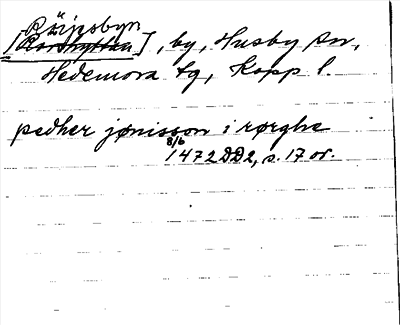 Röijesbyn
[Rörshyttan], by, Husby sn,
Hedemora tg, Kopp l.
pedher jønisson i rørghe
8/6
1472 DD2, s. 17 or.